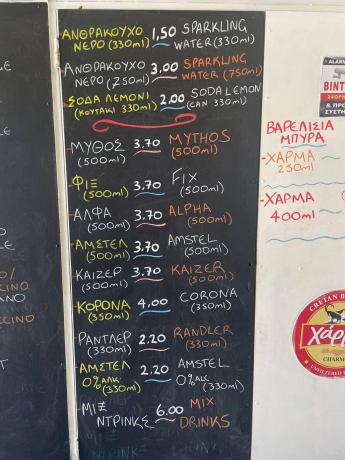 ΑΝΘΡΑΚΟΥΧΟ 1,50 SPARKLING
ΝΕΡΟ (330ml) WATER (330ml)
ΑΝΘΡΑΚΟΥΧΟ 3.00 SPARKLING
ΝΕΡΟ (250ml) WATER (750ml)
ΣΟΔΑ ΛΕΜΟΝΙ 2.00 SODA LEMON
(ΚΟΥΤΑΚΙ 330ml) (CAN 330ml)
ΜΥΘΟΣ 3.70 MYTHOS
(500ml) (500ml)
ΦΙΞ 3.70 FIX
(500ml) (500ml)
ΑΛΦΑ 3.70 ALPHA
(500ml) (500ml)
ΑΜΣΤΕΛ 3.70 AMSTEL
(500ml) (500ml)
ΚΑΙΖΕΡ 3.70 KAIZER
(500ml) (500ml)
ΚΟΡΟΝΑ 4,00 CORONA
(350ml) (350ml)
ΡΑΝΤΛΕΡ 2.20 RANDLER
(330ml) (330ml)
ΑΜΣΤΕΛ 2.20 AMSTEL
0% ΑΛΚ. (330ml) 0% ALC (330ml)
ΜΙΞ 6.00 MIX
ΝΤΡΙΝΚΣ DRINKS
ΒΑΡΕΛΙΣΙΑ
ΜΠΥΡΑ
-ΧΑΡΜΑ
250ml
-ΧΑΡΜΑ
400ml
ALARM
CRETAN
CHARM